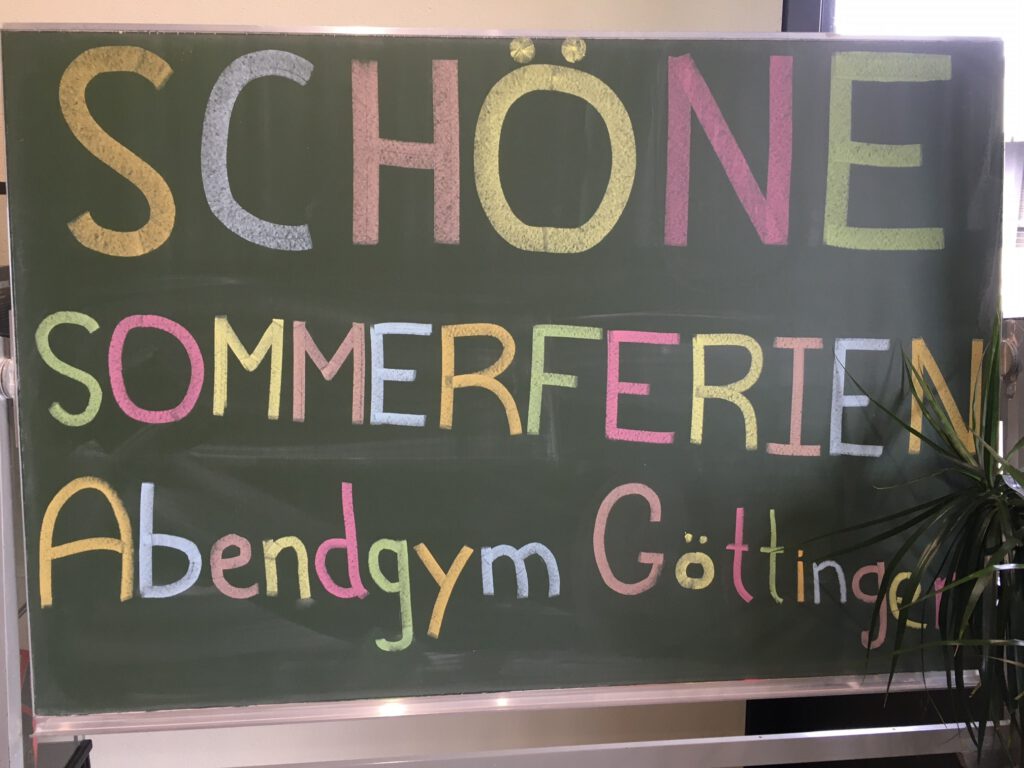 SCHÖNE
SOMMERFERIEN
Abendgym Göttinger